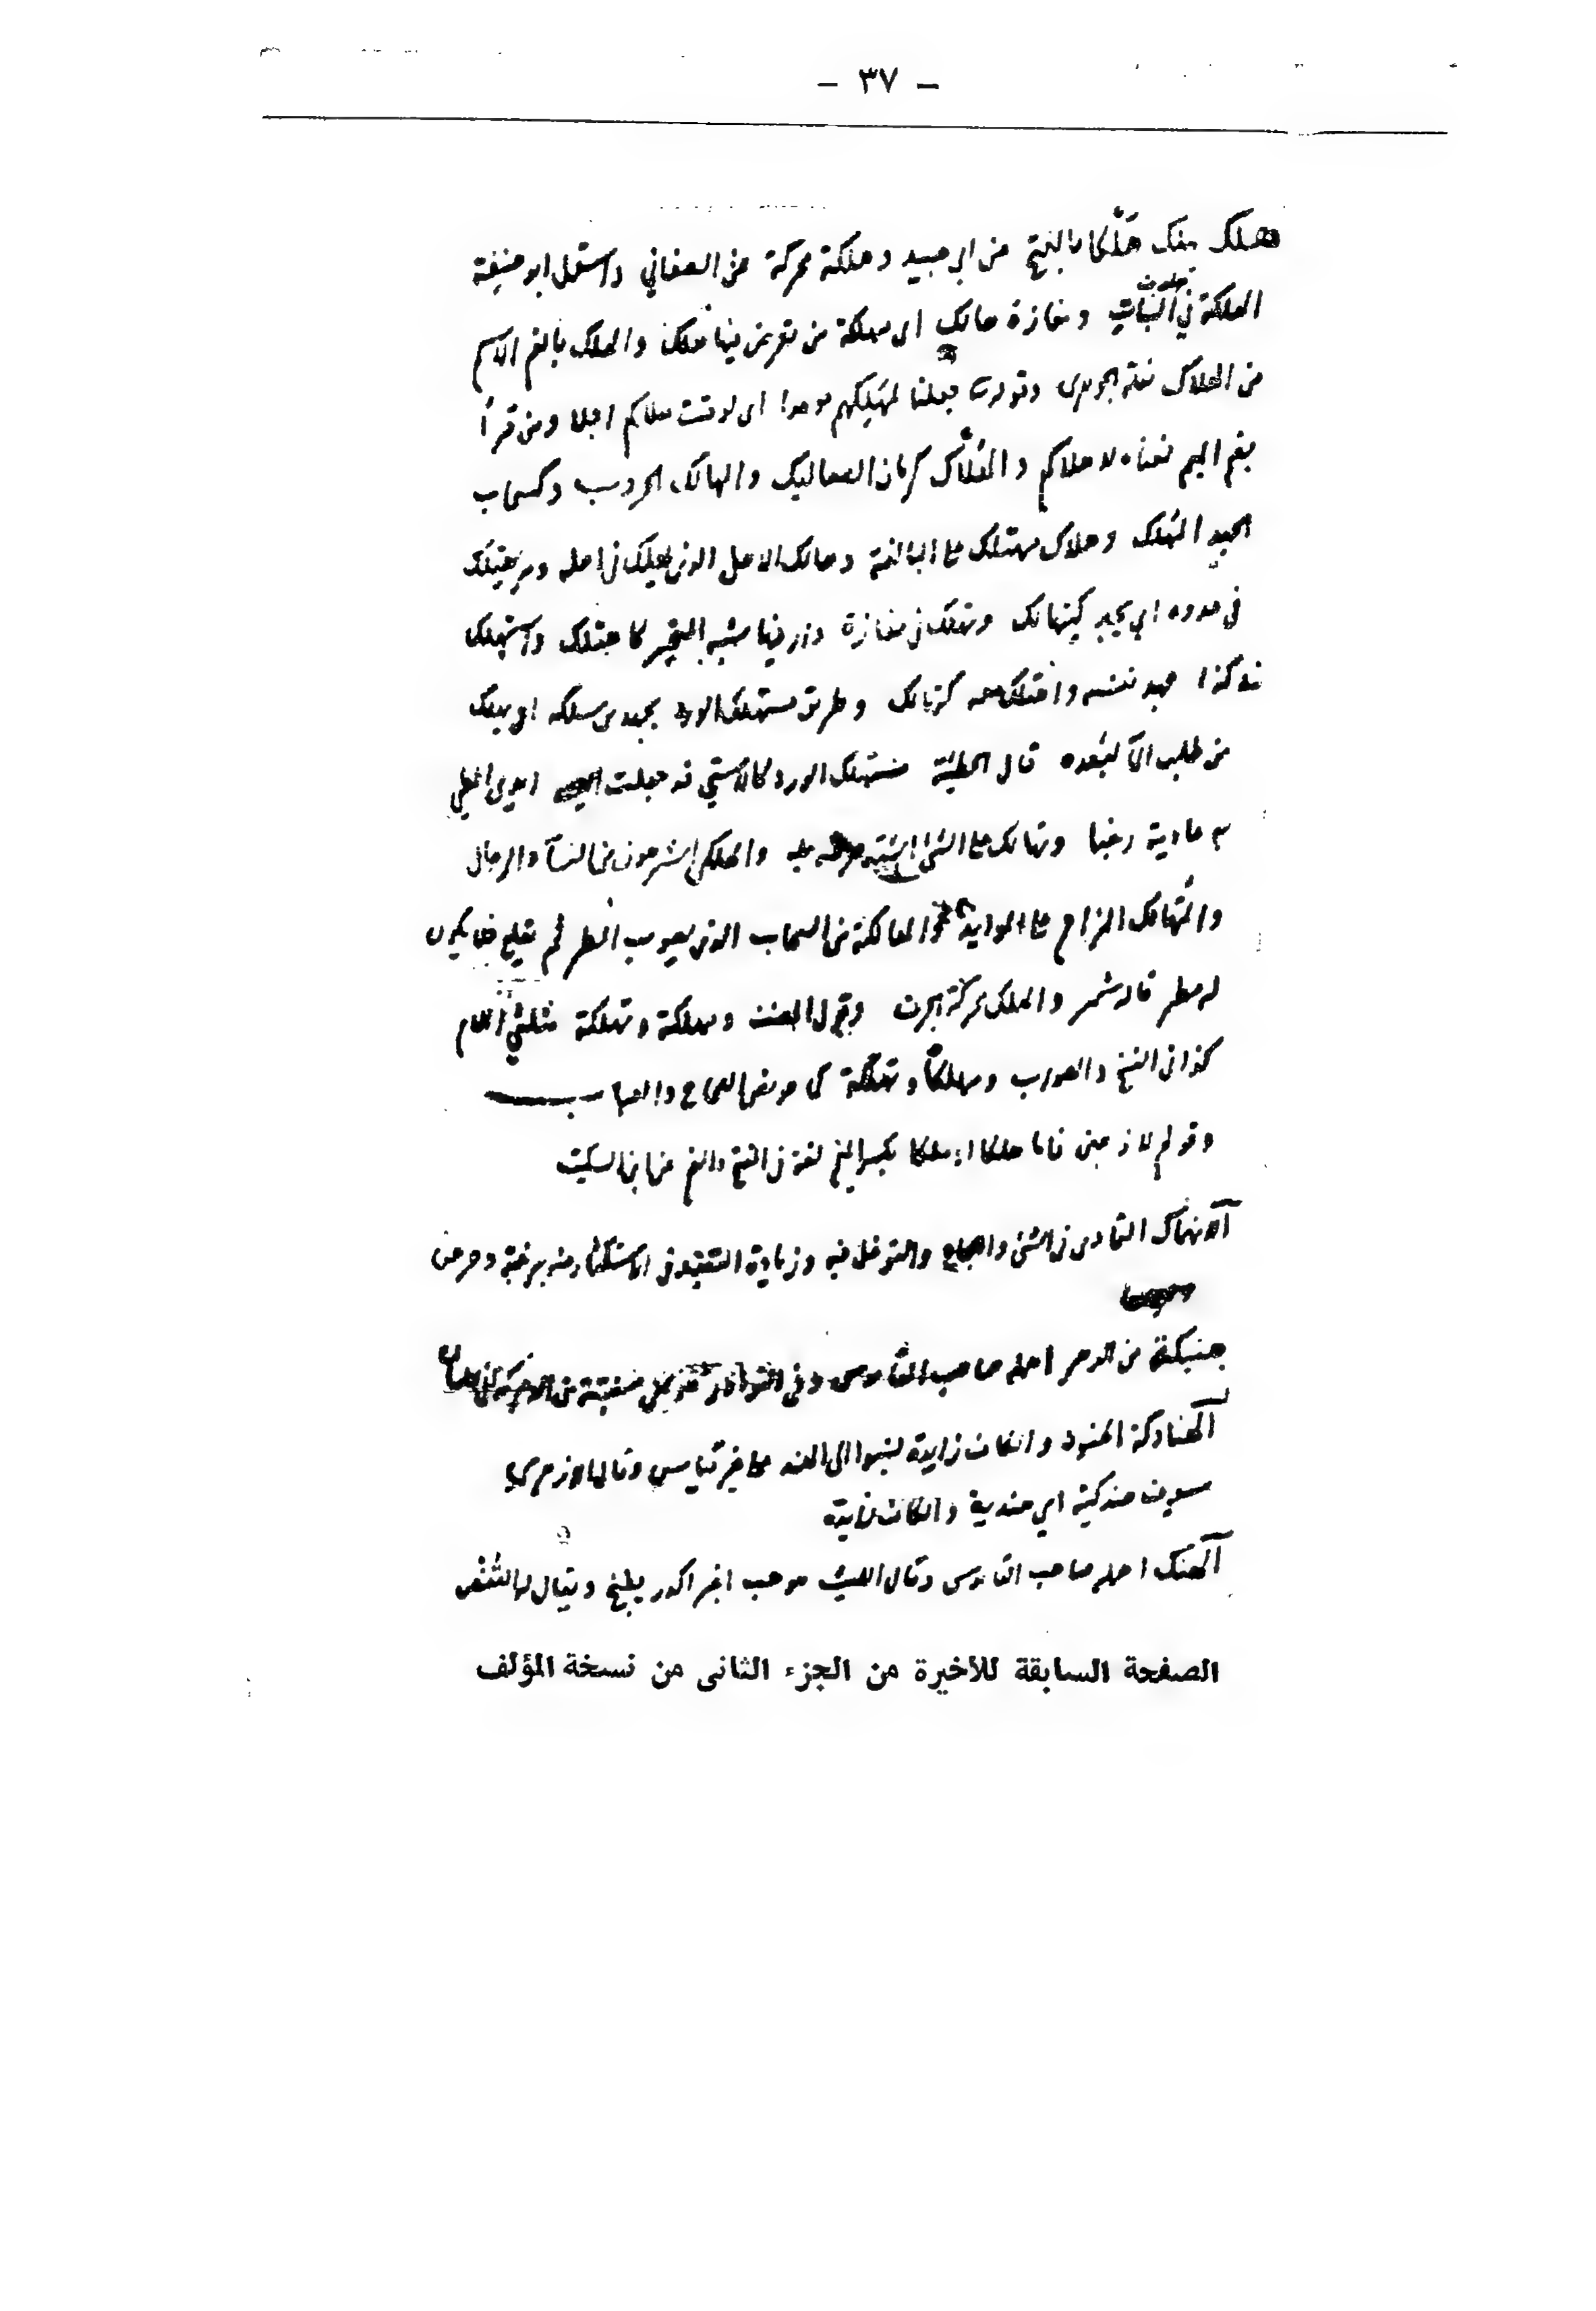 - ٣٧ -
هلك يهلك هَلْكا بالفتح عن ابي عبيد وهلكة محركة عن الصغاني واستعمل ابو حنيفة
الهلكة في النبات ومفازة هالك اى مهلكة من تعرض فيها هلك والهلك بالضم الاسم
من الهلاك نقله الجوهرى وقوله جعلنا لمهلكهم موعدا اى لوقت هلاكهم اجلا ومن قرأ
بضم الميم فمعناه لاهلاكهم والهُلّاك كرمان الصعاليك والهالك وكسحاب
الجهد المهلك وهلاك مهتلك على المبالغة وهالك الاهل الذى يهلك فى اهله
فى عدوه اي يجد كيتهالك وتهلك فى مفازة دار فيها شبه المتحير كاهتلك واستهلك
فى كذا جهد نفسه واهتلك معه كتهالك وطريق مستهلك الورد يجهد من سلكه اي يهلك
من طلب الماء لبعده قال الحطيئة مستهلك الورد كالاستي قد جعلت ايدى المطي
به عادية رغبا وتهالك على الشئ اشتد حرصه عليه والهلكى الشرهون من النسآء والرجال
والمتهالك المزاحم على الموايد والهالكة من السحاب الذى يصوب المطر ثم يقلع فلا يكون
له مطر قاله شمر والهلك محركة الجرف وقول العنت ومهلكة وتهلكة مثلثي اللام
كذا فى النسخ والصواب ومهلكا وتهلكة كما هو نص الصحاح والعباب
وقولهم لاذهبن فاما هلكا واما ملكا بكسرالميم لغة فى الفتح والضم عن ابن السكيت
الانهماك التمادى فى الشئ واللجاج والتوغل فيه وزيادة التقيد فى الاستكثار منه برغبة وحرص
هنبكة من الدهر اهمله صاحب القاموس وفي النوادر
الهنادكة الهنود والكاف زايدة نسبوا الى الهند على غير قياس وقال الازهرى
سيوف هندكية اي هندية والكاف زايدة
الهنك اهمله صاحب القاموس وقال الليث هو حب اغبر اكدر يطبخ ويقال له القفص
الصفحة السابقة للأخيرة من الجزء الثانى من نسخة المؤلف